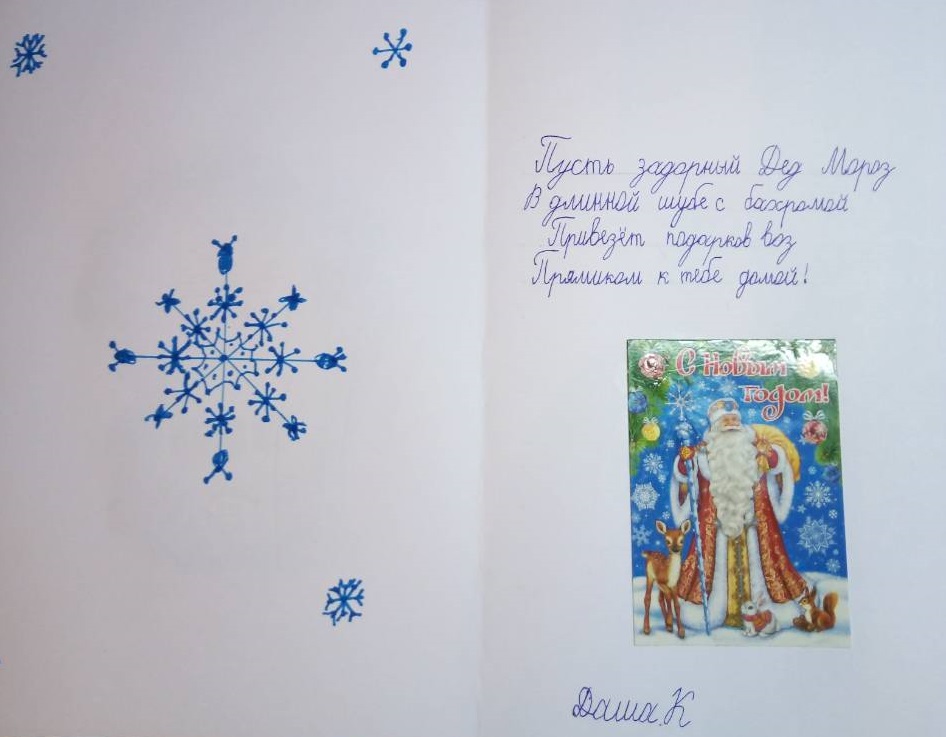 Пусть задорный Дед Мороз
В длинной шубе с бахромой
Привезёт подарков воз
Прямиком к тебе домой!
С Новым
годом!
Даша.К